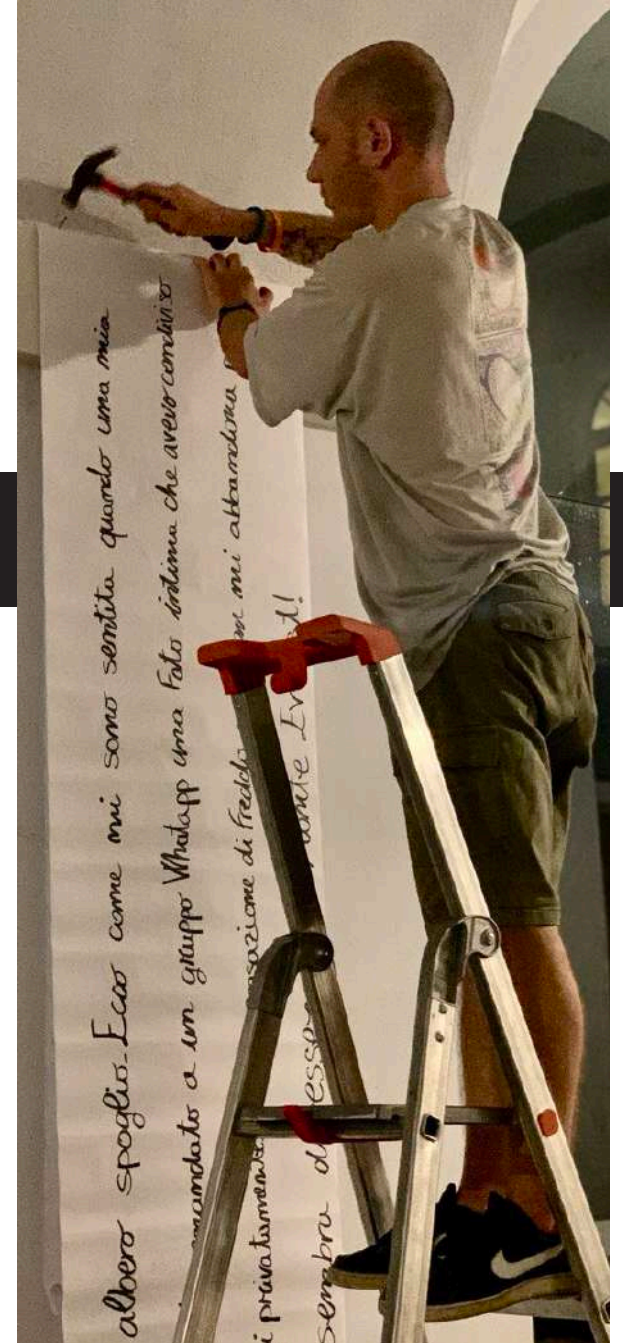 albero spoglio. Ecco come mi sono sentita quando una mia
mandato a un gruppo Whatapp una Foto intima che avevo condiviso
i privatamente sazione di Freddo mi abbandona
sembra d esse